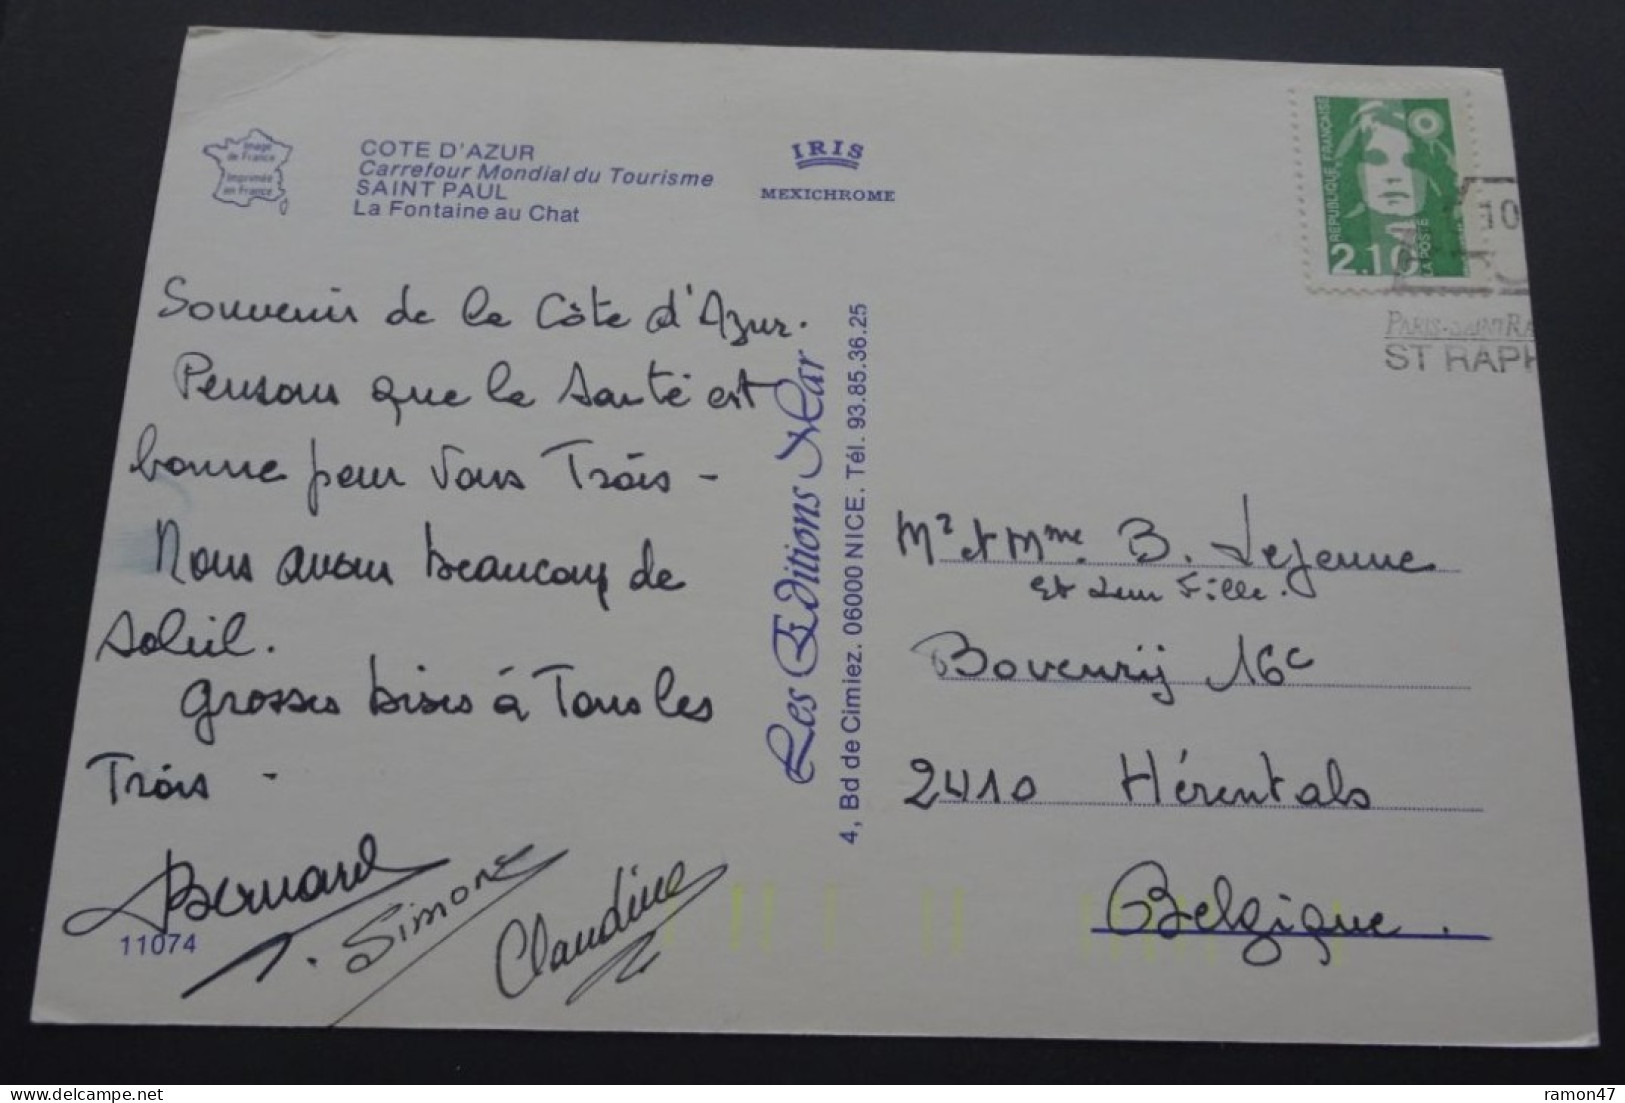 Image
de France
Imprimée
en France
COTE D'AZUR
Carrefour Mondial du Tourisme
SAINT PAUL
La Fontaine au Chat
IRIS
MEXICHROME
REPUBLIQUE FRANÇAISE
2.10
LA POSTE
10
PARIS-SAINT RA
ST RAPH
Souvenir de la Côte d'Azur.
Pensons que la santé est
bonne pour vous Trois -
Nous avons beaucoup de
soleil.
grosses bises à Tous les
Trois -
Bernard
Simone
Claudine
11074
Les Editions Mar
4, Bd de Cimiez. 06000 NICE. Tél. 93.85.36.25
Mr et Mme B. Lejeune
et leur Fille.
Bovenrij 16c
2410 Hérentals
Belgique.
ramon47